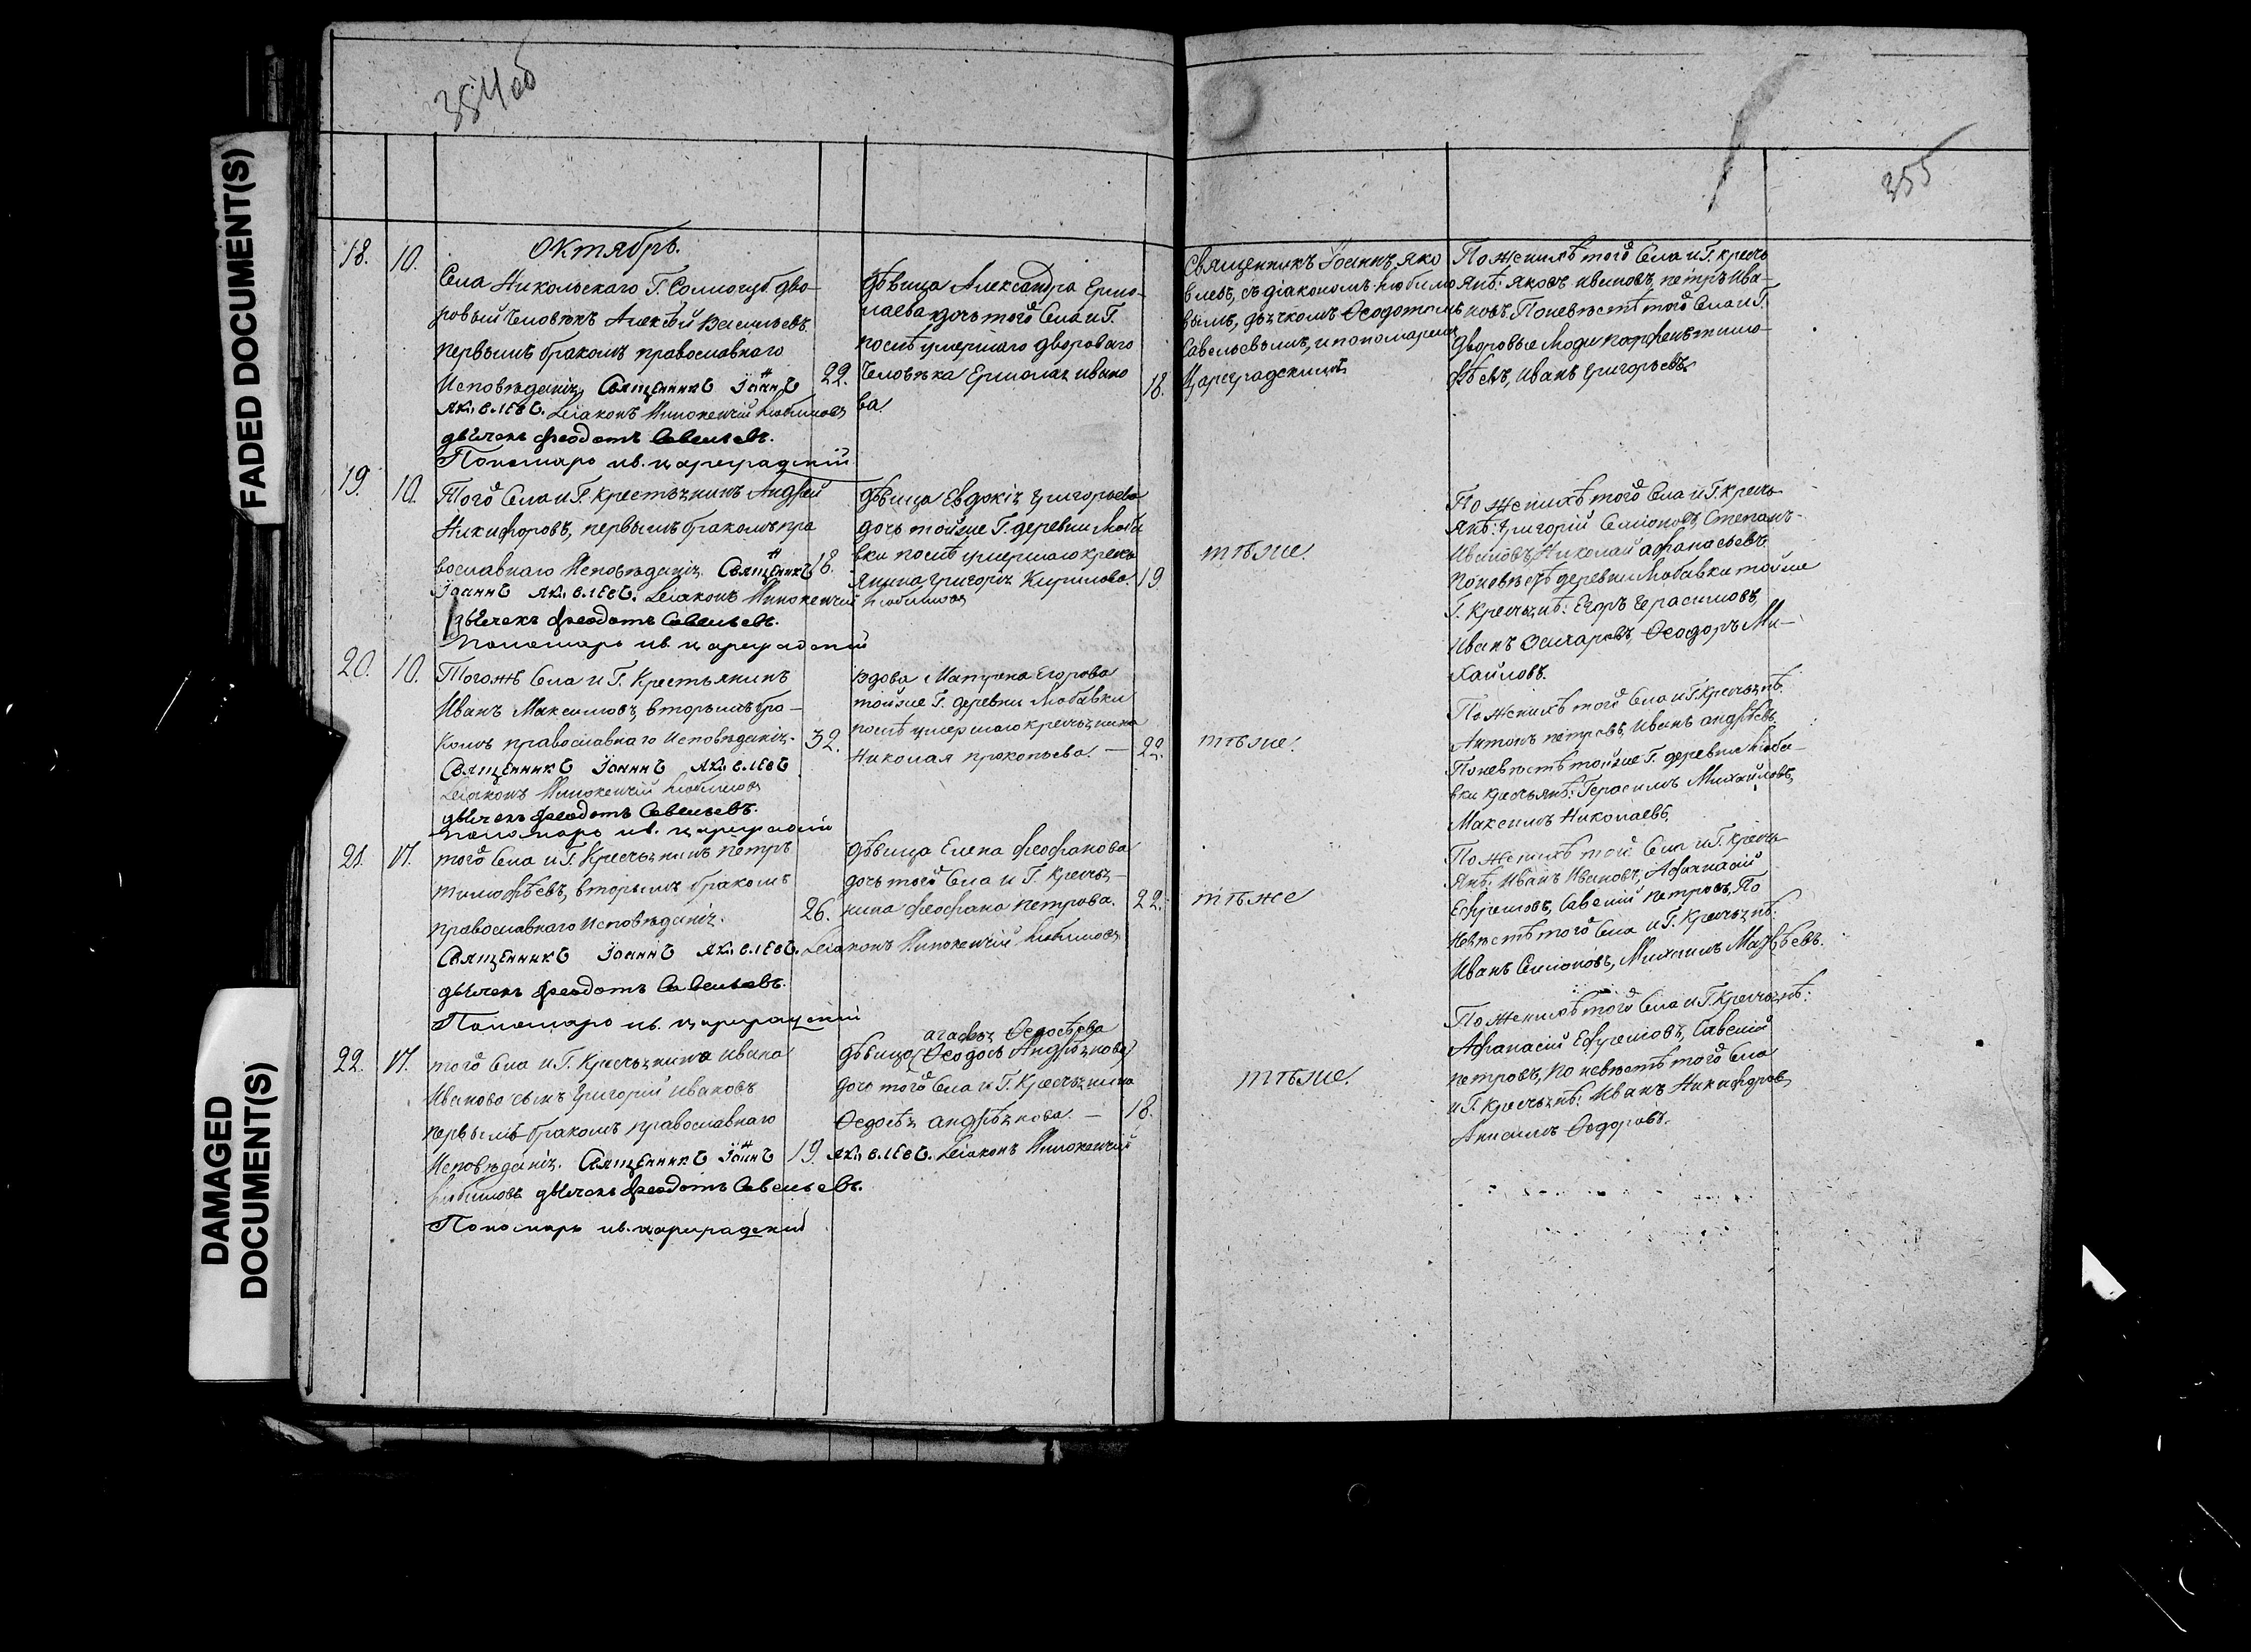 FADED DOCUMENT(S)
DAMAGED
DOCUMENT(S)
354об
355
Октябрь.
18. 10.
Села Никольскаго Г. дво-
ровый человѣкъ Алексѣй Васильевъ
первымъ бракомъ православнаго
Исповѣданія, Священникъ Іоаннъ 22.
Яковлевъ. Діаконъ Иннокентій Любимовъ
дьячекъ Феодотъ Савельевъ.
Пономарь Ив. Цареградскій
дѣвица Александра Ермо-
лаева дочь того Села и Г.
послѣ умершаго двороваго
Человѣка Ермолая Ивано
ва. 18.
Священникъ Іоаннъ Яко
влевъ, съ діакономъ Любимо
вымъ, дьячкомъ Ѳеодотомъ
Савельевымъ, и пономаремъ
Цареградскимъ
По женихѣ того Села и Г. кресть
янѣ: Яковъ Ивановъ, Петръ Ива-
новъ, По невѣстѣ того Села и Г.
Дворовые Люди Парфенъ Тимо-
фѣевъ, Иванъ Григорьевъ.
19. 10.
Того Села и Г. Крестьянинъ Андрей
Никифоровъ, первымъ бракомъ пра
вославнаго Исповѣданія. Священникъ 18.
Іоаннъ Яковлевъ. Діаконъ Иннокентій Любимовъ
дьячекъ Феодотъ Савельевъ.
Пономарь Ив. Цареградскій
дѣвица Евдокія Григорьева
дочь тойже Г. деревни Люба
вки послѣ умершаго кресть
янина Григорія Кирилова. 19
тѣже.
По женихѣ того Села и Г. кресть
янѣ: Григорій Семіоновъ, Степанъ
Ивановъ, Николай Афанасьевъ.
По невѣстѣ деревни Любавки тойже
Г. Крестьянѣ: Егоръ Герасимовъ,
Иванъ Захаровъ, Ѳеодоръ Ми-
хайловъ.
20. 10.
Тогожъ Села и Г. Крестьянинъ
Иванъ Максимовъ, вторымъ бра-
комъ православнаго Исповѣданія. 32.
Священникъ Іоаннъ Яковлевъ
Діаконъ Иннокентій Любимовъ
дьячекъ Феодотъ Савельевъ.
Пономарь Ив. Цареградскій
вдова Матрена Егорова
тойже Г. деревни Любавки
послѣ умершаго крестьянина
Николая Прокопьева. — 22.
тѣже.
По женихѣ того Села и Г. Крестьянѣ.
Антонъ Петровъ, Иванъ Андрѣевъ.
По невѣстѣ тойже Г. деревни Люба-
вки крестьянѣ: Герасимъ Михайловъ,
Максимъ Николаевъ.
21. 17.
того Села и Г. Крестьянинъ Петръ
Тимофѣевъ, вторымъ бракомъ
православнаго Исповѣданія. 26.
Священникъ Іоаннъ Яковлевъ. Діаконъ Иннокентій Любимовъ
дьячекъ Феодотъ Савельевъ.
Пономарь Ив. Цареградскій
дѣвица Елена Феофанова
дочь того Села и Г. Крестья-
нина Феофана Петрова. 22.
тѣже
По женихѣ того Села и Г. Кресть
янѣ: Иванъ Ивановъ, Афанасій
Ефремовъ, Савелій Петровъ, По
невѣстѣ того Села и Г. Крестьянѣ:
Иванъ Симоновъ, Михаилъ Матвѣевъ.
22. 17.
того Села и Г. Крестьянина Ивана
Иванова сынъ Григорій Ивановъ
первымъ бракомъ православнаго
Исповѣданія. Священникъ Іоаннъ 19. Яковлевъ. Діаконъ Иннокентій
Любимовъ дьячекъ Феодотъ Савельевъ.
Пономарь Ив. Цареградскій
Агафья Ѳедосѣева
дѣвица (Ѳеодось Андріянова)
дочь того Села и Г. Крестьянина
Ѳедосѣя Андріянова. — 18.
тѣже.
По женихѣ того Села и Г. Крестьянѣ:
Афанасій Ефремовъ, Савелій
Петровъ, По невѣстѣ того Села
и Г. Крестьянѣ: Иванъ Никифоровъ,
Анисимъ Ѳедоровъ.